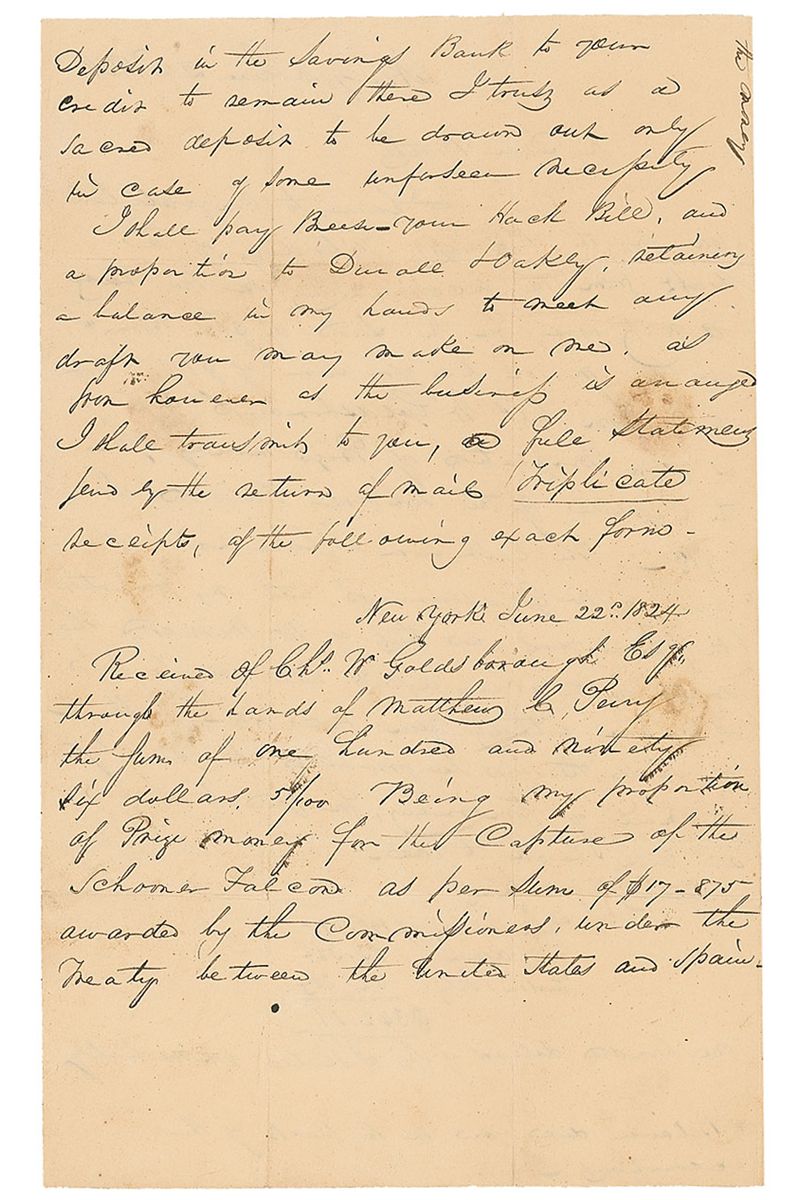 the money
Deposit in the Savings Bank to your
credit to remain there I trust as a
sacred deposit to be drawn out only
in case of some unforseen necessity
I shall pay Breese - your Hack Bill, and
a proportion to Duvall & Oakly, retaining
a balance in my hands to meet any
draft you may make on me. as
soon however as the business is arranged
I shall transmit to you, a full Statement
send by the return of mail Triplicate
receipts, of the following exact form -
New York June 22d. 1824
Received of Chs. W Goldsborough Esqr.
through the hands of Matthew C. Perry
the sum of one hundred and ninety
six dollars, 51/100 Being my proportion
of Prize money for the Capture of the
Schooner Falcon as per Sum of $17-875
awarded by the Commissioners, under the
Treaty between the United States and Spain -